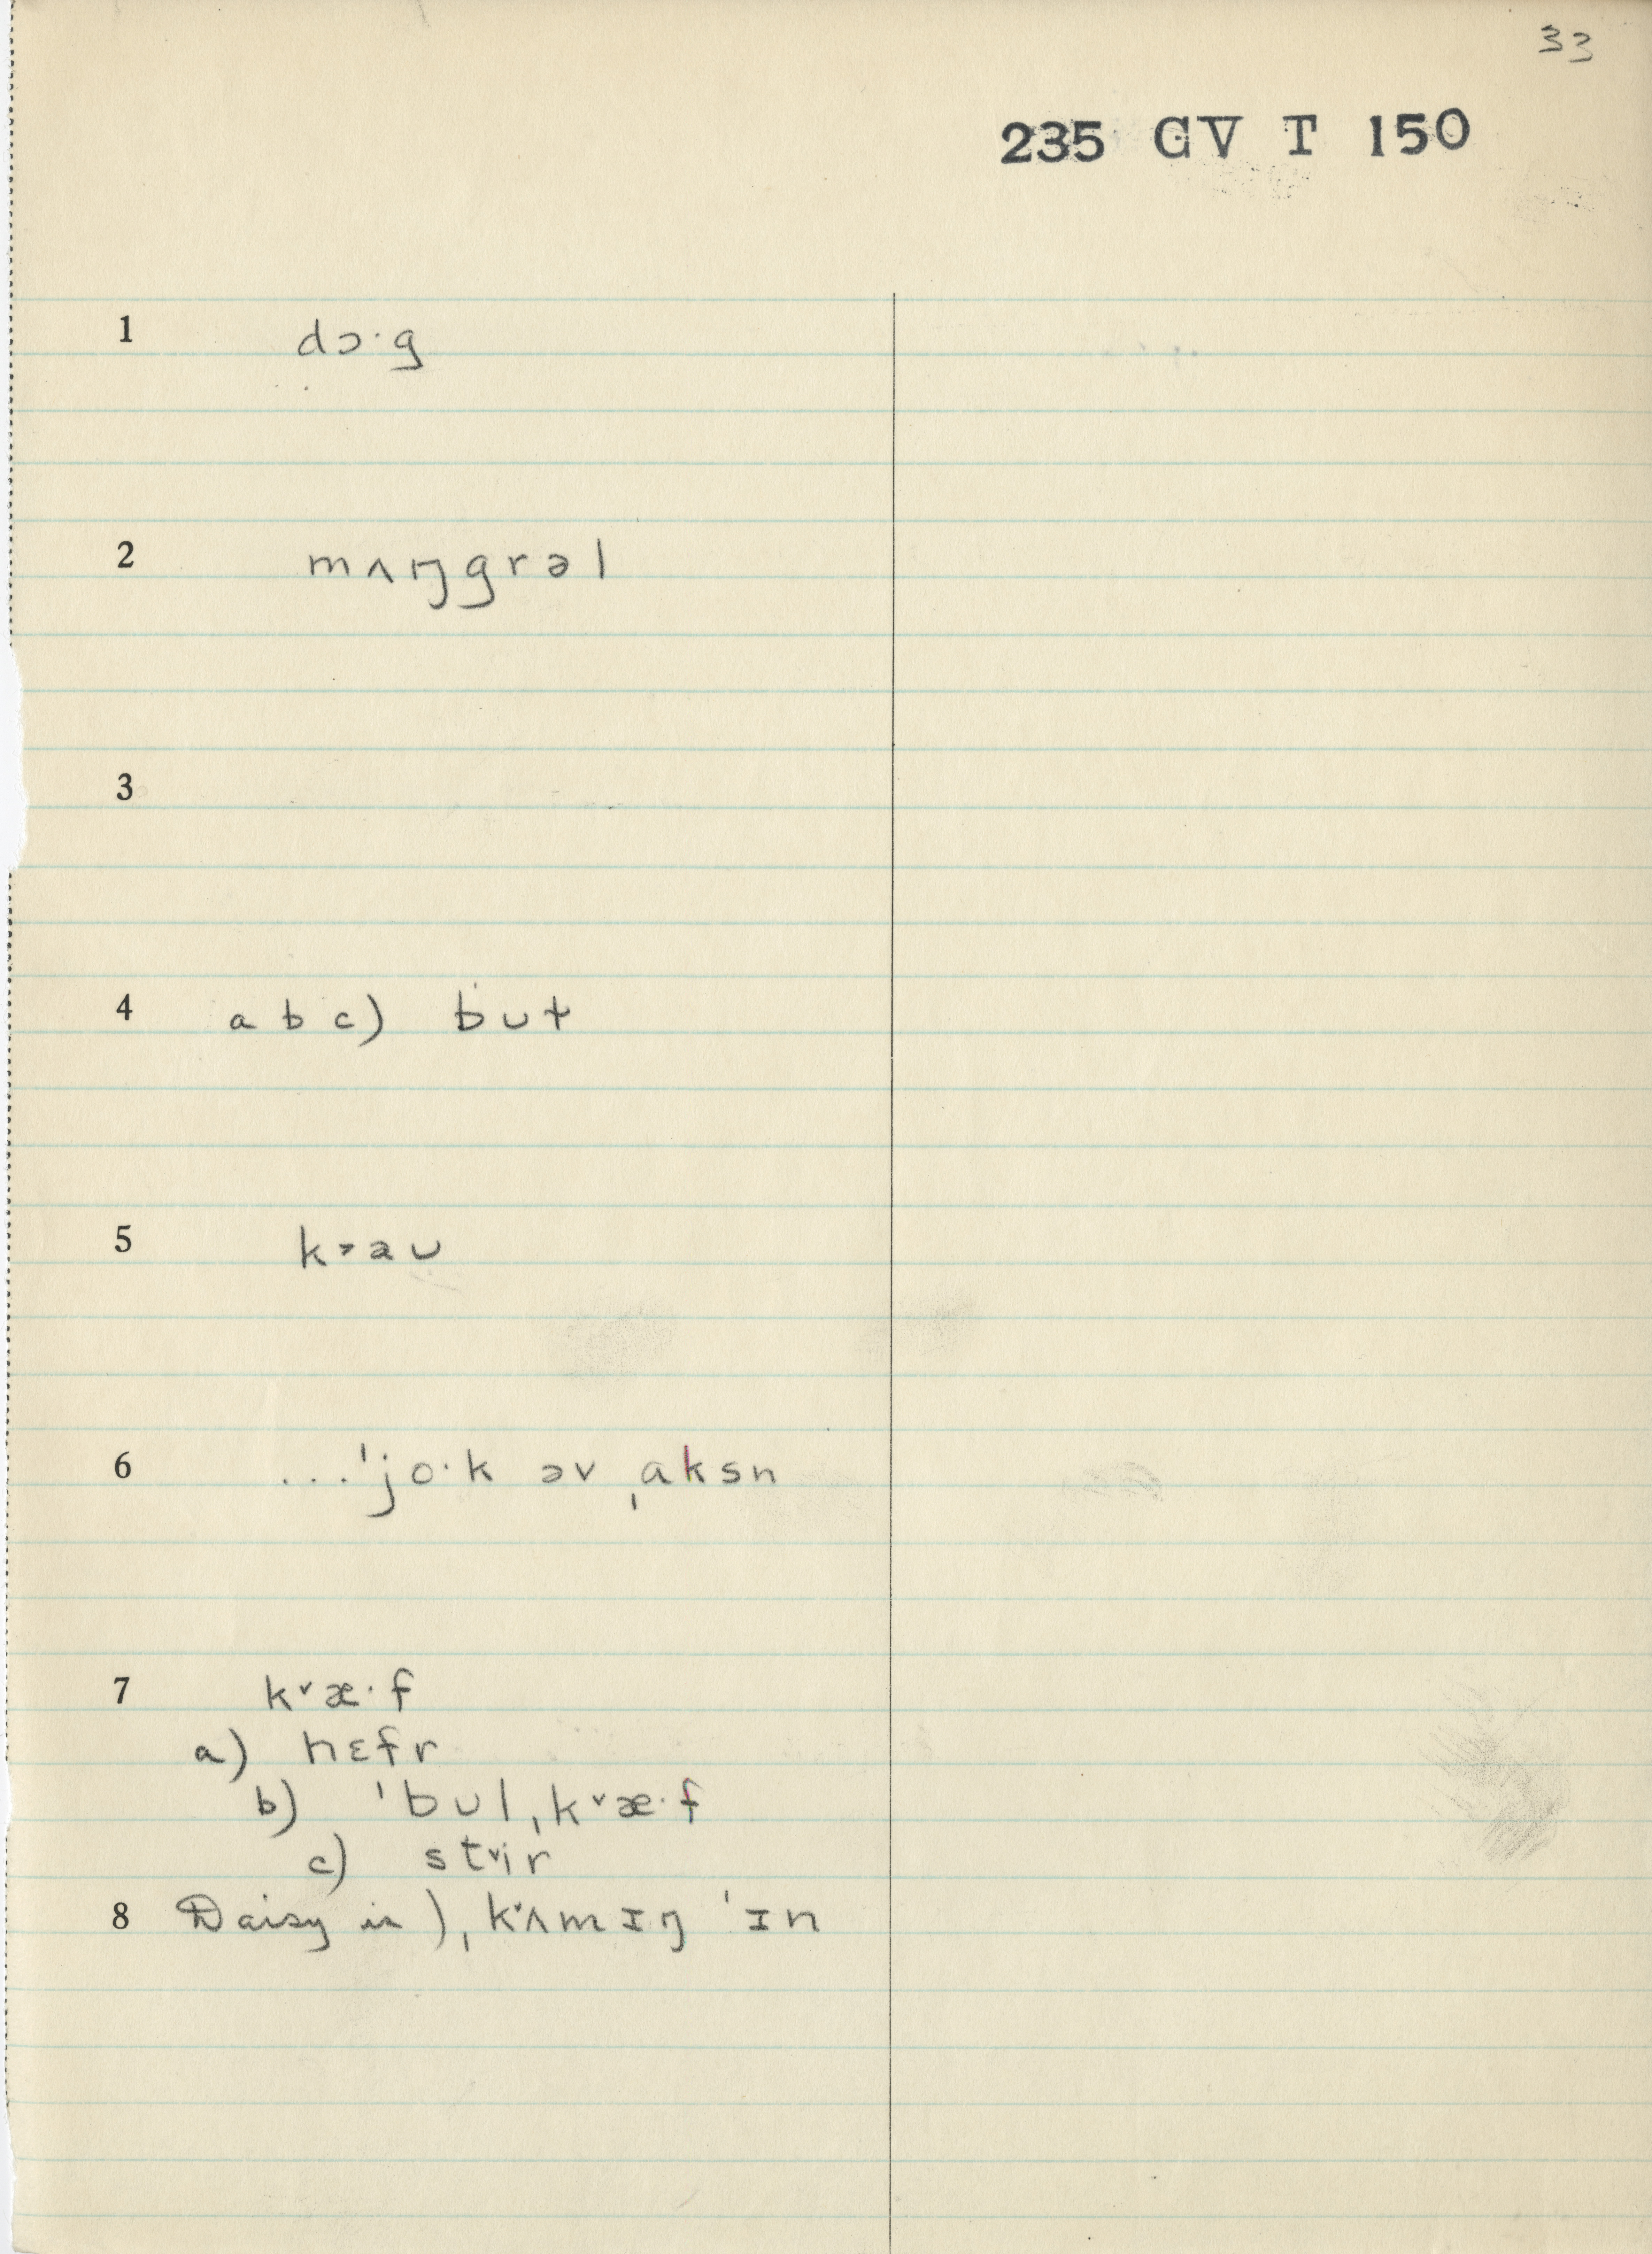 33
235 GV T 150
1 dɔ·g
2 mʌŋgrəl
3
4 a b c) bʊt
5 k˃aʊ
6 ...ˈjo·k əv ˌaksn
7 k˅æ·f
a) hɛfr
b) ˈbʊlˌk˅æ·f
c) st˅ir
8 Daisy is) ˌk˅ʌmɪŋ ˈɪn